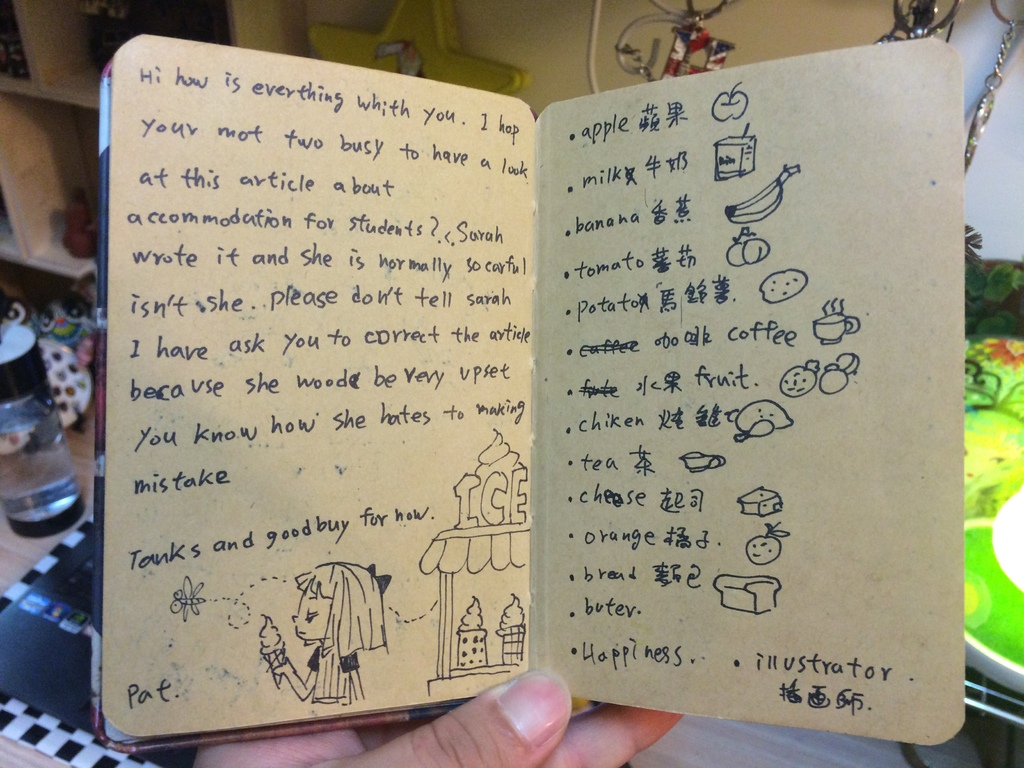 Hi how is everthing whith you. I hop
your mot two busy to have a look
at this article about
accommodation for students? Sarah
wrote it and she is normally so carful
isn't she. please don't tell sarah
I have ask you to correct the article
because she woode be very upset
you know how she hates to making
mistake
Tanks and goodbuy for now.
ICE
Pat.
• apple 蘋果
• milk 牛奶
• banana 香蕉
• tomato 蕃茄
• potato 馬鈴薯
• 咖啡 coffee
• 水果 fruit.
• chiken 炖雞
• tea 茶
• cheese 起司
• orange 橘子.
• bread 麵包
• buter.
• Happiness..
• illustrator.
插画師.